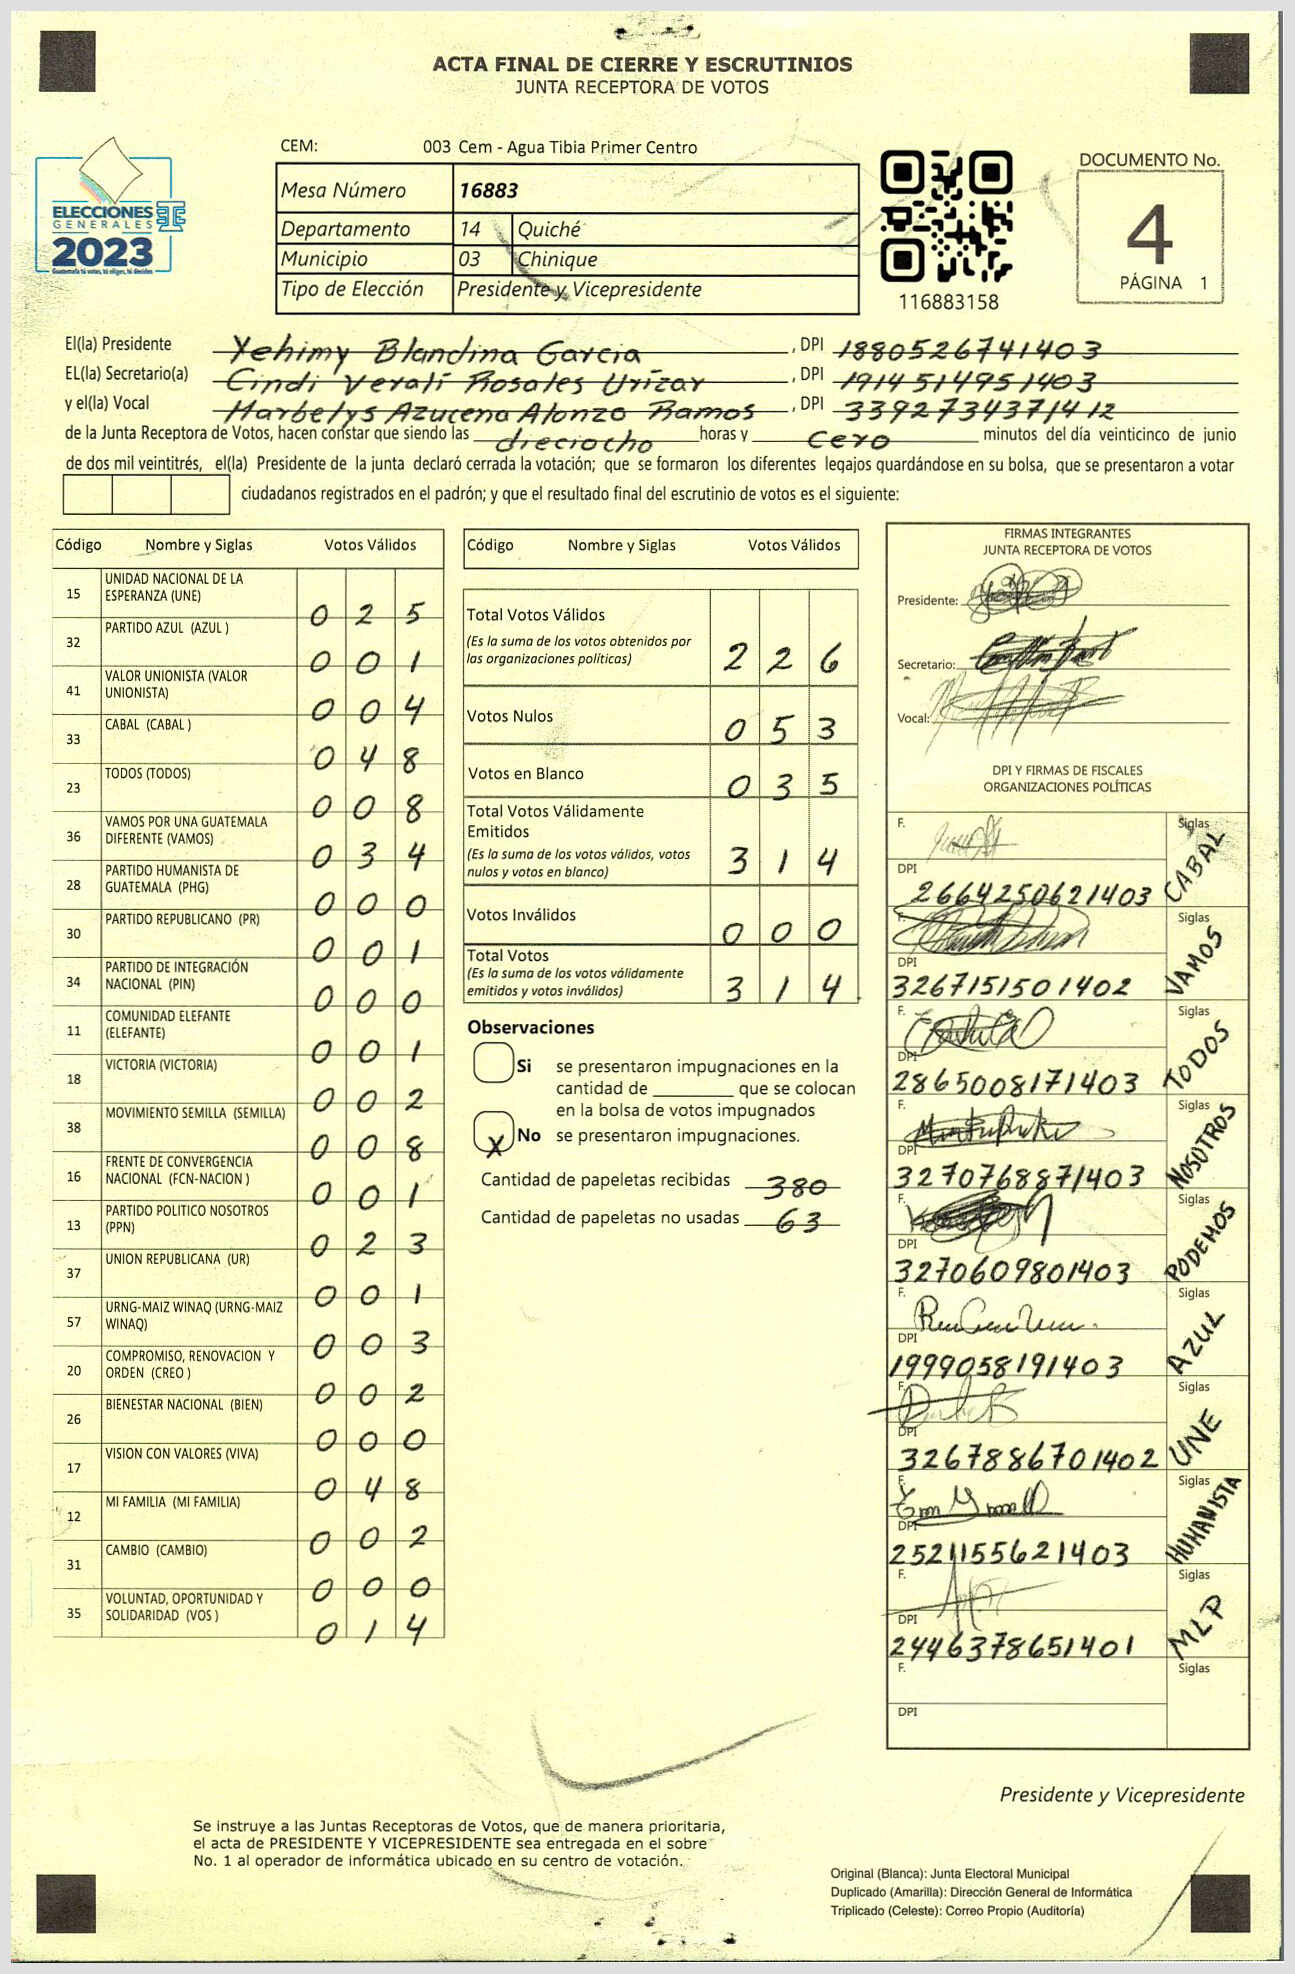 ACTA FINAL DE CIERRE Y ESCRUTINIOS
JUNTA RECEPTORA DE VOTOS
ELECCIONES
GENERALES
2023
Guatemala tú votas, tú eliges, tú decides
CEM: 003 Cem - Agua Tibia Primer Centro
Mesa Número 16883
Departamento 14 Quiché
Municipio 03 Chinique
Tipo de Elección Presidente y Vicepresidente
116883158
DOCUMENTO No.
4
PÁGINA 1
El(la) Presidente Yehimy Blandina Garcia , DPI 1880526741403
EL(la) Secretario(a) Cindi Yeralí Rosales Urízar , DPI 1914514951403
y el(la) Vocal Marbelys Azucena Alonzo Ramos , DPI 3392734371412
de la Junta Receptora de Votos, hacen constar que siendo las dieciocho horas y cero minutos del día veinticinco de junio
de dos mil veintitrés, el(la) Presidente de la junta declaró cerrada la votación; que se formaron los diferentes legajos guardándose en su bolsa, que se presentaron a votar
ciudadanos registrados en el padrón; y que el resultado final del escrutinio de votos es el siguiente:
Código Nombre y Siglas Votos Válidos
15 UNIDAD NACIONAL DE LA ESPERANZA (UNE) 0 2 5
32 PARTIDO AZUL (AZUL ) 0 0 1
41 VALOR UNIONISTA (VALOR UNIONISTA) 0 0 4
33 CABAL (CABAL ) 0 4 8
23 TODOS (TODOS) 0 0 8
36 VAMOS POR UNA GUATEMALA DIFERENTE (VAMOS) 0 3 4
28 PARTIDO HUMANISTA DE GUATEMALA (PHG) 0 0 0
30 PARTIDO REPUBLICANO (PR) 0 0 1
34 PARTIDO DE INTEGRACIÓN NACIONAL (PIN) 0 0 0
11 COMUNIDAD ELEFANTE (ELEFANTE) 0 0 1
18 VICTORIA (VICTORIA) 0 0 2
38 MOVIMIENTO SEMILLA (SEMILLA) 0 0 8
16 FRENTE DE CONVERGENCIA NACIONAL (FCN-NACION ) 0 0 1
13 PARTIDO POLITICO NOSOTROS (PPN) 0 2 3
37 UNION REPUBLICANA (UR) 0 0 1
57 URNG-MAIZ WINAQ (URNG-MAIZ WINAQ) 0 0 3
20 COMPROMISO, RENOVACION Y ORDEN (CREO ) 0 0 2
26 BIENESTAR NACIONAL (BIEN) 0 0 0
17 VISION CON VALORES (VIVA) 0 4 8
12 MI FAMILIA (MI FAMILIA) 0 0 2
31 CAMBIO (CAMBIO) 0 0 0
35 VOLUNTAD, OPORTUNIDAD Y SOLIDARIDAD (VOS ) 0 1 4
Código Nombre y Siglas Votos Válidos
Total Votos Válidos
(Es la suma de los votos obtenidos por
las organizaciones políticas) 2 2 6
Votos Nulos 0 5 3
Votos en Blanco 0 3 5
Total Votos Válidamente
Emitidos
(Es la suma de los votos válidos, votos
nulos y votos en blanco) 3 1 4
Votos Inválidos 0 0 0
Total Votos
(Es la suma de los votos válidamente
emitidos y votos inválidos) 3 1 4
Observaciones
Si se presentaron impugnaciones en la
cantidad de ________ que se colocan
en la bolsa de votos impugnados
X No se presentaron impugnaciones.
Cantidad de papeletas recibidas 380
Cantidad de papeletas no usadas 63
FIRMAS INTEGRANTES
JUNTA RECEPTORA DE VOTOS
Presidente:
Secretario:
Vocal:
DPI Y FIRMAS DE FISCALES
ORGANIZACIONES POLÍTICAS
F. Siglas
DPI 2664250621403 CABAL
F. Siglas
DPI 3267151501402 VAMOS
F. Siglas
DPI 2865008171403 TODOS
F. Siglas
DPI 3270768871403 NOSOTROS
F. Siglas
DPI 3270609801403 PODEMOS
F. Siglas
DPI 1999058191403 AZUL
F. Siglas
DPI 3267886701402 UNE
F. Siglas
DPI 2521155621403 HUMANISTA
F. Siglas
DPI 2446378651401 MLP
F. Siglas
DPI
Presidente y Vicepresidente
Se instruye a las Juntas Receptoras de Votos, que de manera prioritaria,
el acta de PRESIDENTE Y VICEPRESIDENTE sea entregada en el sobre
No. 1 al operador de informática ubicado en su centro de votación.
Original (Blanca): Junta Electoral Municipal
Duplicado (Amarilla): Dirección General de Informática
Triplicado (Celeste): Correo Propio (Auditoría)